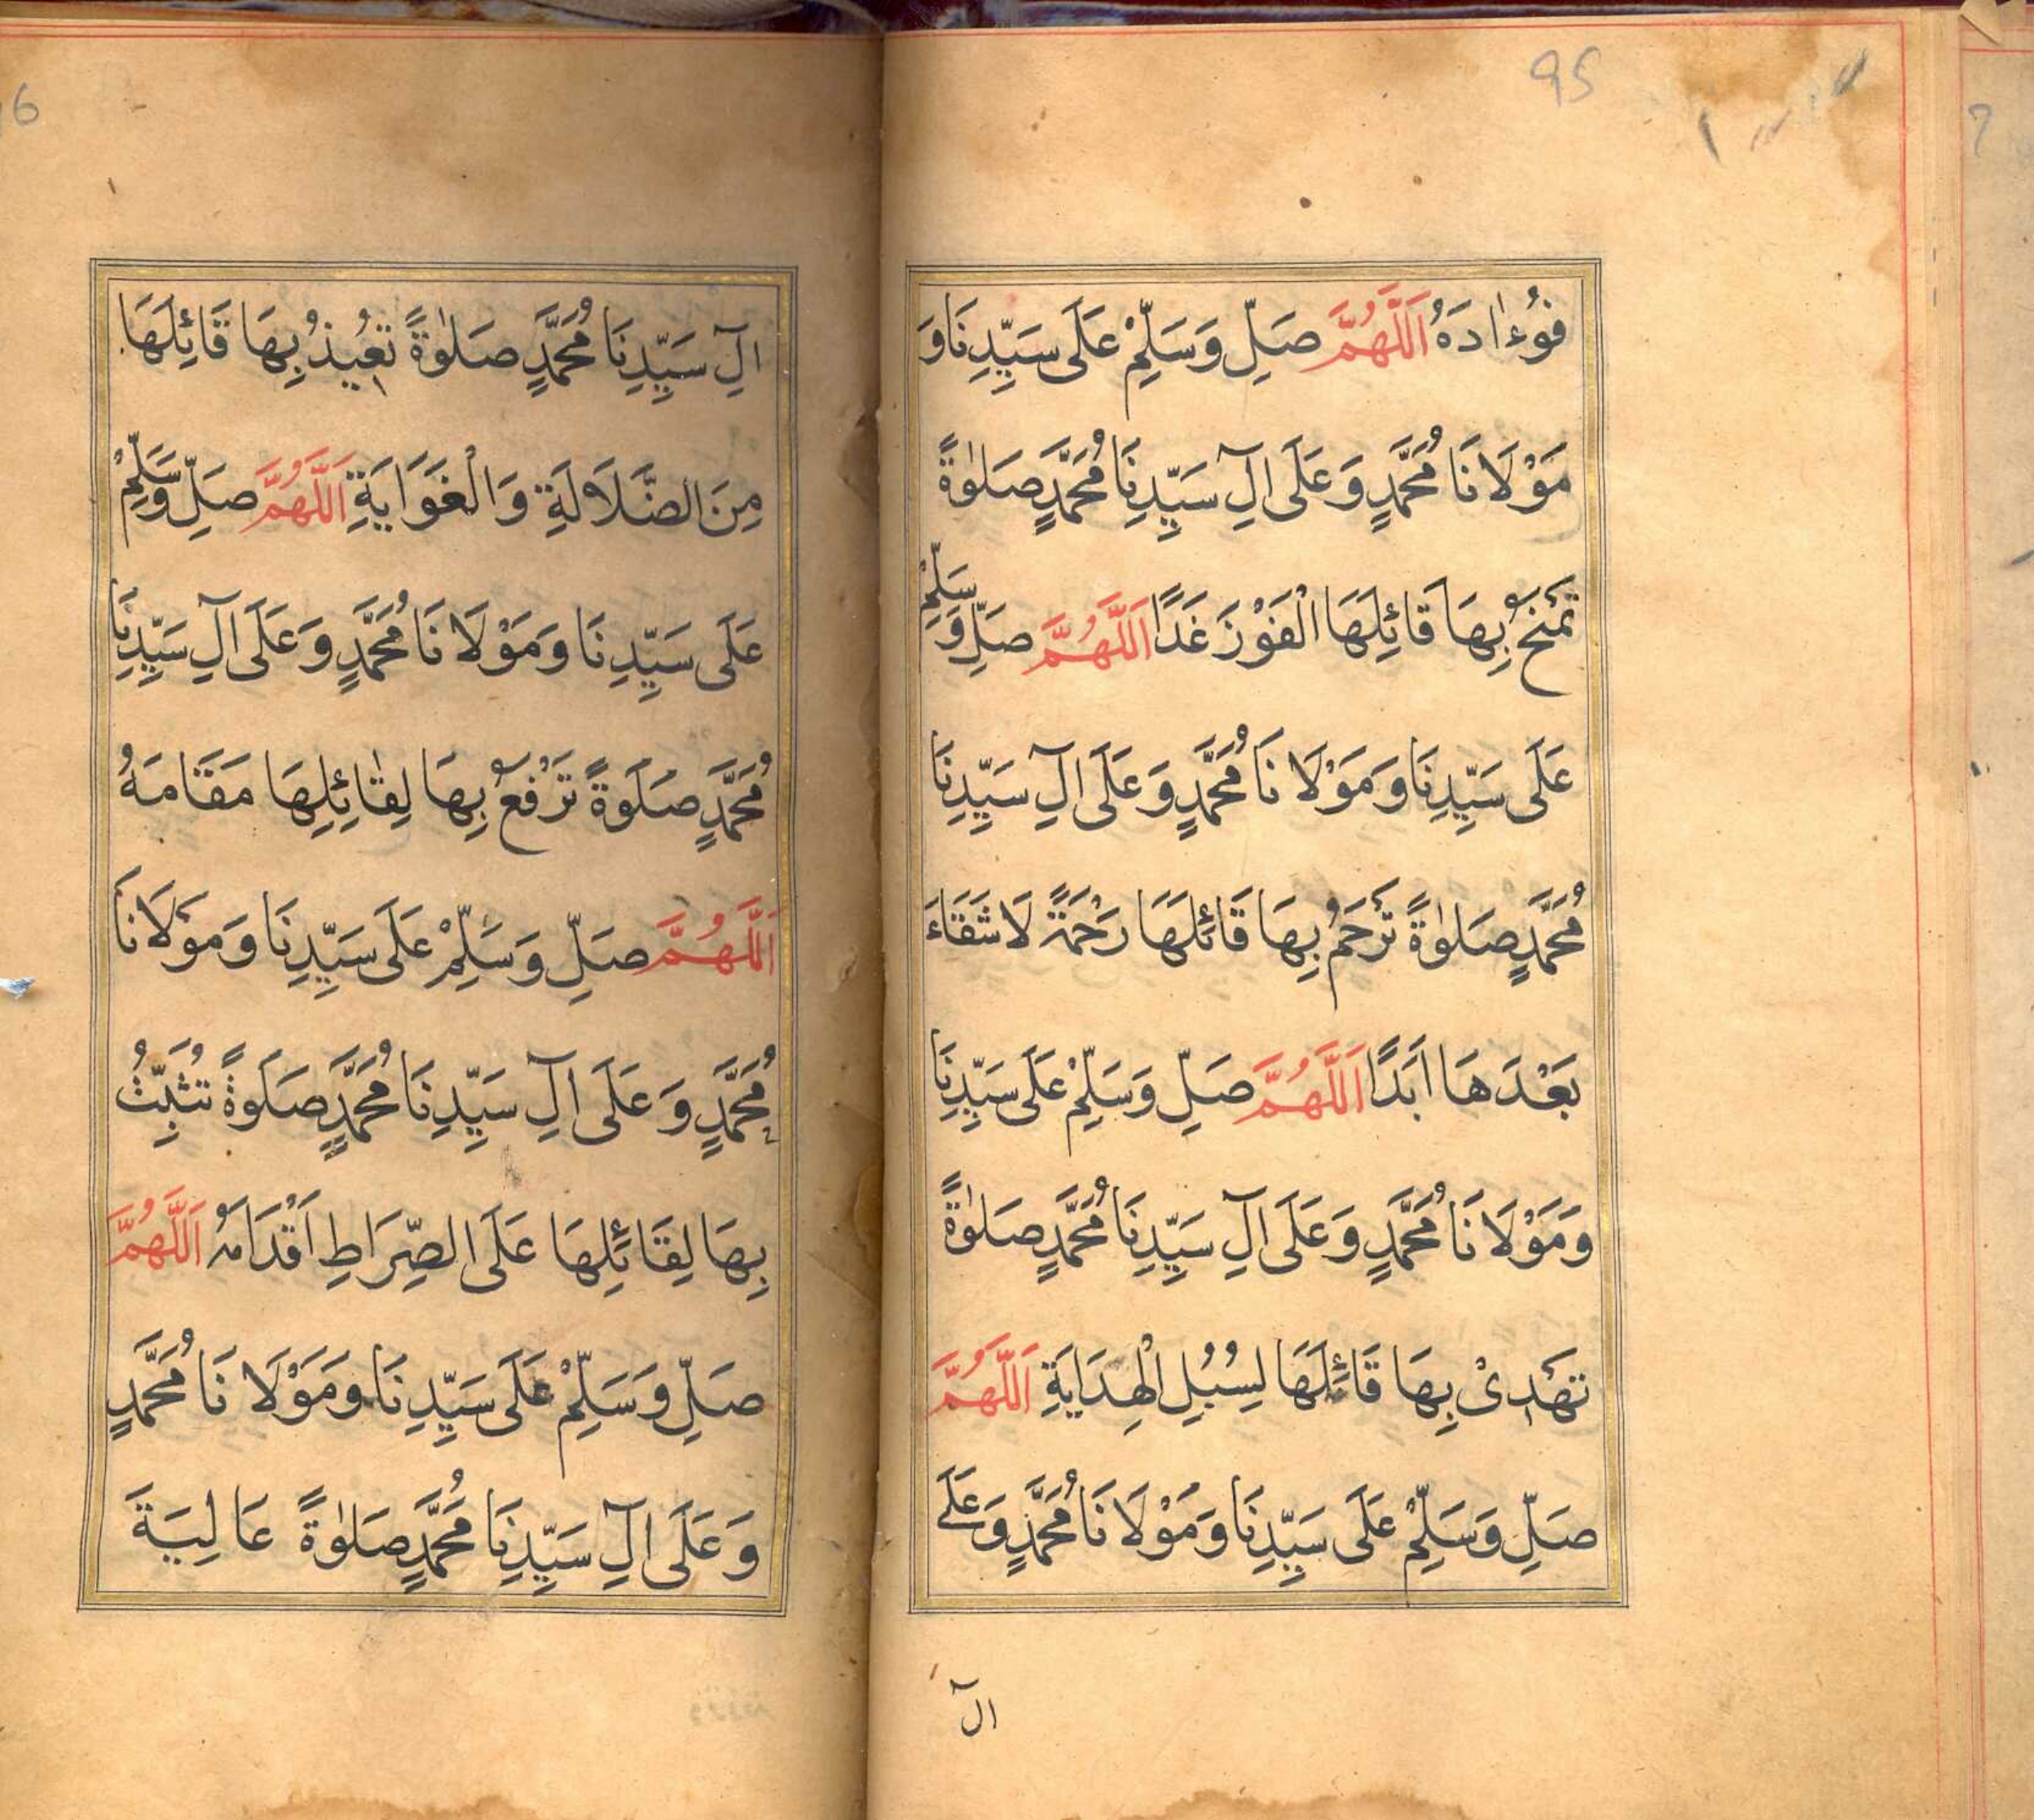 95
فُوءَادَهُ اَللّٰهُمَّ صَلِّ وَسَلِّمْ عَلَى سَيِّدِنَا وَ
مَوْلَانَا مُحَمَّدٍ وَعَلَى اٰلِ سَيِّدِنَا مُحَمَّدٍ صَلٰوةً
تَمْنَحُ بِهَا قَائِلَهَا الْفَوْزَ غَدًا اَللّٰهُمَّ صَلِّ وَسَلِّمْ
عَلَى سَيِّدِنَا وَمَوْلَانَا مُحَمَّدٍ وَعَلَى اٰلِ سَيِّدِنَا
مُحَمَّدٍ صَلٰوةً تَرْحَمُ بِهَا قَائِلَهَا رَحْمَةً لَا شَقَاءَ
بَعْدَهَا اَبَدًا اَللّٰهُمَّ صَلِّ وَسَلِّمْ عَلَى سَيِّدِنَا
وَمَوْلَانَا مُحَمَّدٍ وَعَلَى اٰلِ سَيِّدِنَا مُحَمَّدٍ صَلٰوةً
تَهْدِىْ بِهَا قَائِلَهَا لِسُبُلِ الْهِدَايَةِ اَللّٰهُمَّ
صَلِّ وَسَلِّمْ عَلَى سَيِّدِنَا وَمَوْلَانَا مُحَمَّدٍ وَعَلَى
اٰل
اٰلِ سَيِّدِنَا مُحَمَّدٍ صَلٰوةً تُعِيْذُ بِهَا قَائِلَهَا
مِنَ الضَّلَالَةِ وَالْغَوَايَةِ اَللّٰهُمَّ صَلِّ وَسَلِّمْ
عَلَى سَيِّدِنَا وَمَوْلَانَا مُحَمَّدٍ وَعَلَى اٰلِ سَيِّدِنَا
مُحَمَّدٍ صَلَوةً تَرْفَعُ بِهَا لِقَائِلِهَا مَقَامَهُ
اَللّٰهُمَّ صَلِّ وَسَلِّمْ عَلَى سَيِّدِنَا وَمَوْلَانَا
مُحَمَّدٍ وَعَلَى اٰلِ سَيِّدِنَا مُحَمَّدٍ صَلَوةً تُثَبِّتُ
بِهَا لِقَائِلِهَا عَلَى الصِّرَاطِ اَقْدَامَهُ اَللّٰهُمَّ
صَلِّ وَسَلِّمْ عَلَى سَيِّدِنَا وَمَوْلَانَا مُحَمَّدٍ
وَعَلَى اٰلِ سَيِّدِنَا مُحَمَّدٍ صَلٰوةً عَالِيَةَ